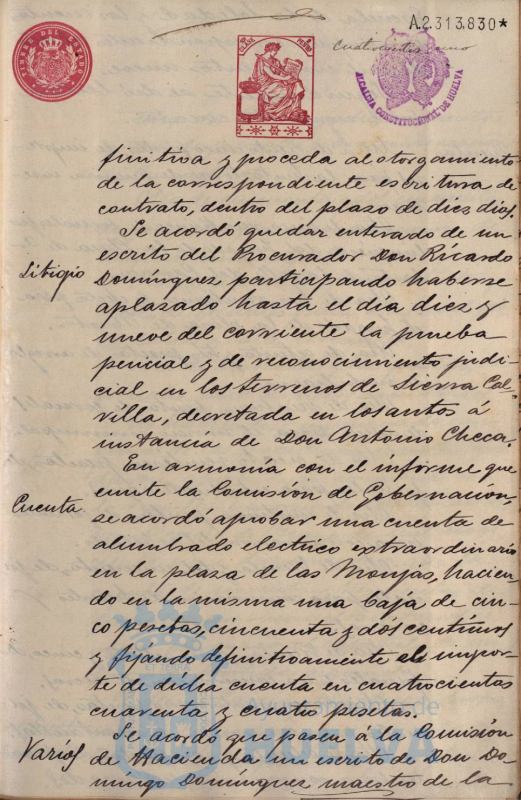 A.2.313.830*
TIMBRE DEL ESTADO
CLASE
cuatrocientos uno
ALCALDIA CONSTITUCIONAL DE HUELVA
finitiva y proceda al otorgamiento
de la correspondiente escritura de
contrato, dentro del plazo de diez dias.
Litigio
Se acordó quedar enterado de un
escrito del Procurador Don Ricardo
Dominguez participando haberse
aplazado hasta el dia diez y
nueve del corriente la prueba
pericial y de reconocimiento judi-
cial en los terrenos de Sierra Cal-
villa, decretada en los autos á
instancia de Don Antonio Checa.
Cuenta
En armonía con el informe que
emite la Comisión de Gobernación,
se acordó aprobar una cuenta de
alumbrado electrico extraordinario
en la plaza de las Monjas, hacien
do en la misma una baja de cin-
co pesetas, cincuenta y dós centimos
y fijando definitivamente el impor-
te de dicha cuenta en cuatrocientas
cuarenta y cuatro pesetas.
Varios
Se acordó que pasen á la Comisión
de Hacienda un escrito de Don Do-
mingo Dominguez maestro de la
Ayuntamiento de
HUELVA